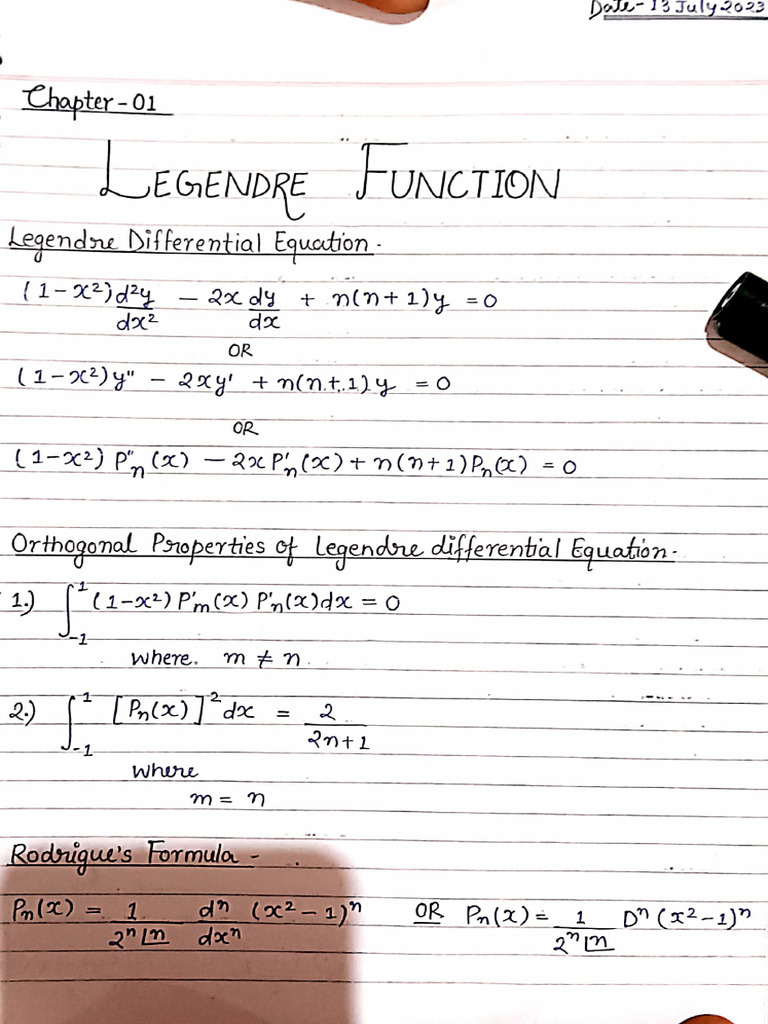 Date- 13 July 2023
Chapter-01
LEGENDRE FUNCTION
Legendre Differential Equation.
(1-x²) d²y/dx² - 2x dy/dx + n(n+1)y = 0
OR
(1-x²)y" - 2xy' + n(n+1)y = 0
OR
(1-x²) P"ₙ(x) - 2x P'ₙ(x) + n(n+1)Pₙ(x) = 0
Orthogonal Properties of Legendre differential Equation.
1.) ∫₋₁¹ (1-x²) P'ₘ(x) P'ₙ(x)dx = 0
where. m ≠ n.
2.) ∫₋₁¹ [Pₙ(x)]² dx = 2/(2n+1)
where
m = n
Rodrigue's Formula -
Pₙ(x) = 1/(2ⁿ ⌊n) dⁿ/dxⁿ (x²-1)ⁿ OR Pₙ(x) = 1/(2ⁿ ⌊n) Dⁿ (x²-1)ⁿ